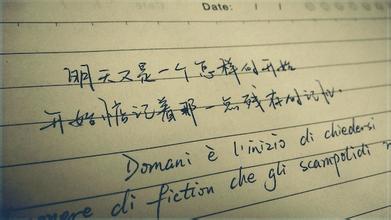 Date: / /
明天又是一个怎样的开始
开始惦记着那一点残存的记忆.
Domani è l'inizio di chiedersi
genere di fiction che gli scampolidi